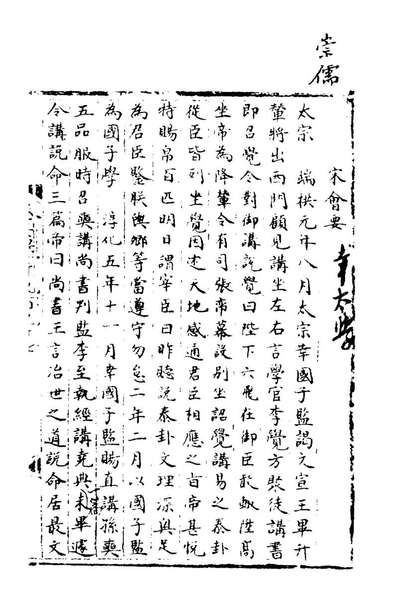 崇儒
宋會要
幸太學
太宗　端拱元年八月太宗幸國子監謁文宣王畢升
輦將出西門顧見講坐左右言學官李覺方聚徒講書
即召覺令對御講說覺曰陛下六飛在御臣敢輒陞高
坐帝為降輦令有司張帟幕設別坐詔覺講易之泰卦
從臣皆列坐覺因述天地感通君臣相應之旨帝甚悅
特賜帛百匹明日謂宰臣曰昨聽說泰卦文理深奧足
為君臣鑒朕與卿等當遵守勿怠二年二月以國子監
為國子學　淳化五年十一月幸國子監賜直講孫奭
五品服時召奭講尚書判監李至執經講堯典一篇未畢遽
令講說命三篇帝曰尚書王言治世之道說命居最文